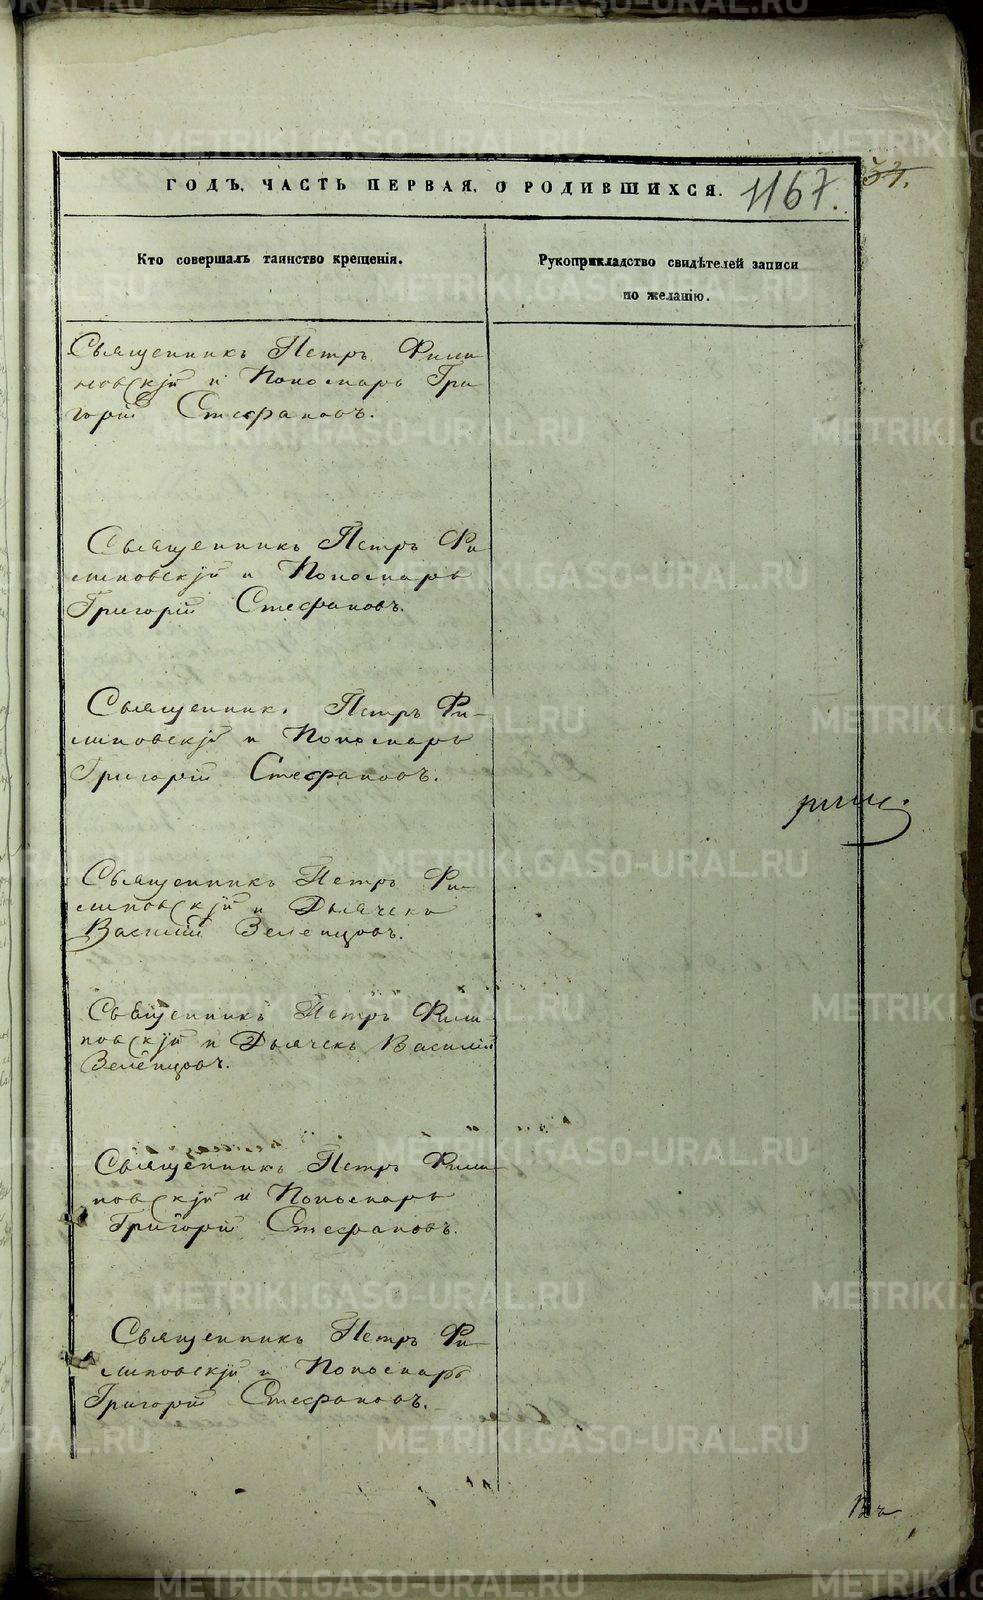 METRIKI.GASO-URAL.RU
ГОДЪ, ЧАСТЬ ПЕРВАЯ, О РОДИВШИХСЯ. 1167. 37.
Кто совершалъ таинство крещенія.
Рукоприкладство свидѣтелей записи
по желанію.
Священникъ Петръ Фили
повскій и Пономарь Гри
горій Стефановъ.
Священникъ Петръ Фи
липовскій и Пономарь
Григорій Стефановъ.
Священник. Петръ Фи-
липовскій и Пономарь
Григорій Стефановъ.
Священникъ Петръ Фи-
липовскій и Дьячекъ
Василій Зеленцовъ.
Священникъ Петръ Фили
повскій и Дьячекъ Василій
Зеленцовъ.
Священникъ Петръ Фили
повскій и Пономарь
Григорій Стефановъ.
Священникъ Петръ Фи-
липовскій и Пономарь
Григорій Стефановъ.
Въ